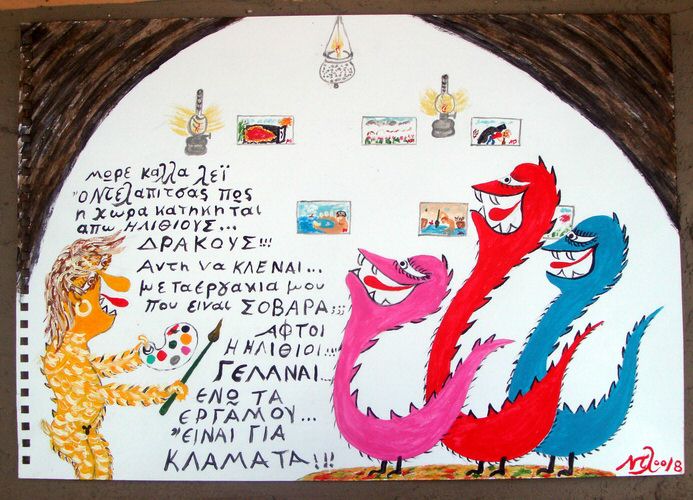 μωρε καλλα λεϊ
"Ο Ντελαπιτσας πος
η χωρα κατηκηται
απω ΗΛΙΘΙΟΥΣ...
ΔΡΑΚΟΥΣ!!!
Αντη να ΚΛΕΝΑΙ...
μεταεργακια μου
που ειναι ΣΟΒΑΡΑ;;;
ΑΦΤΟΙ
Η ΗΛΙΘΙΟΙ...
ΓΕΛΑΝΑΙ...
ΕΝΩ ΤΑ
ΕΡΓΑΜΟΥ...
"ΕΙΝΑΙ ΓΙΑ
ΚΛΑΜΑΤΑ!!!